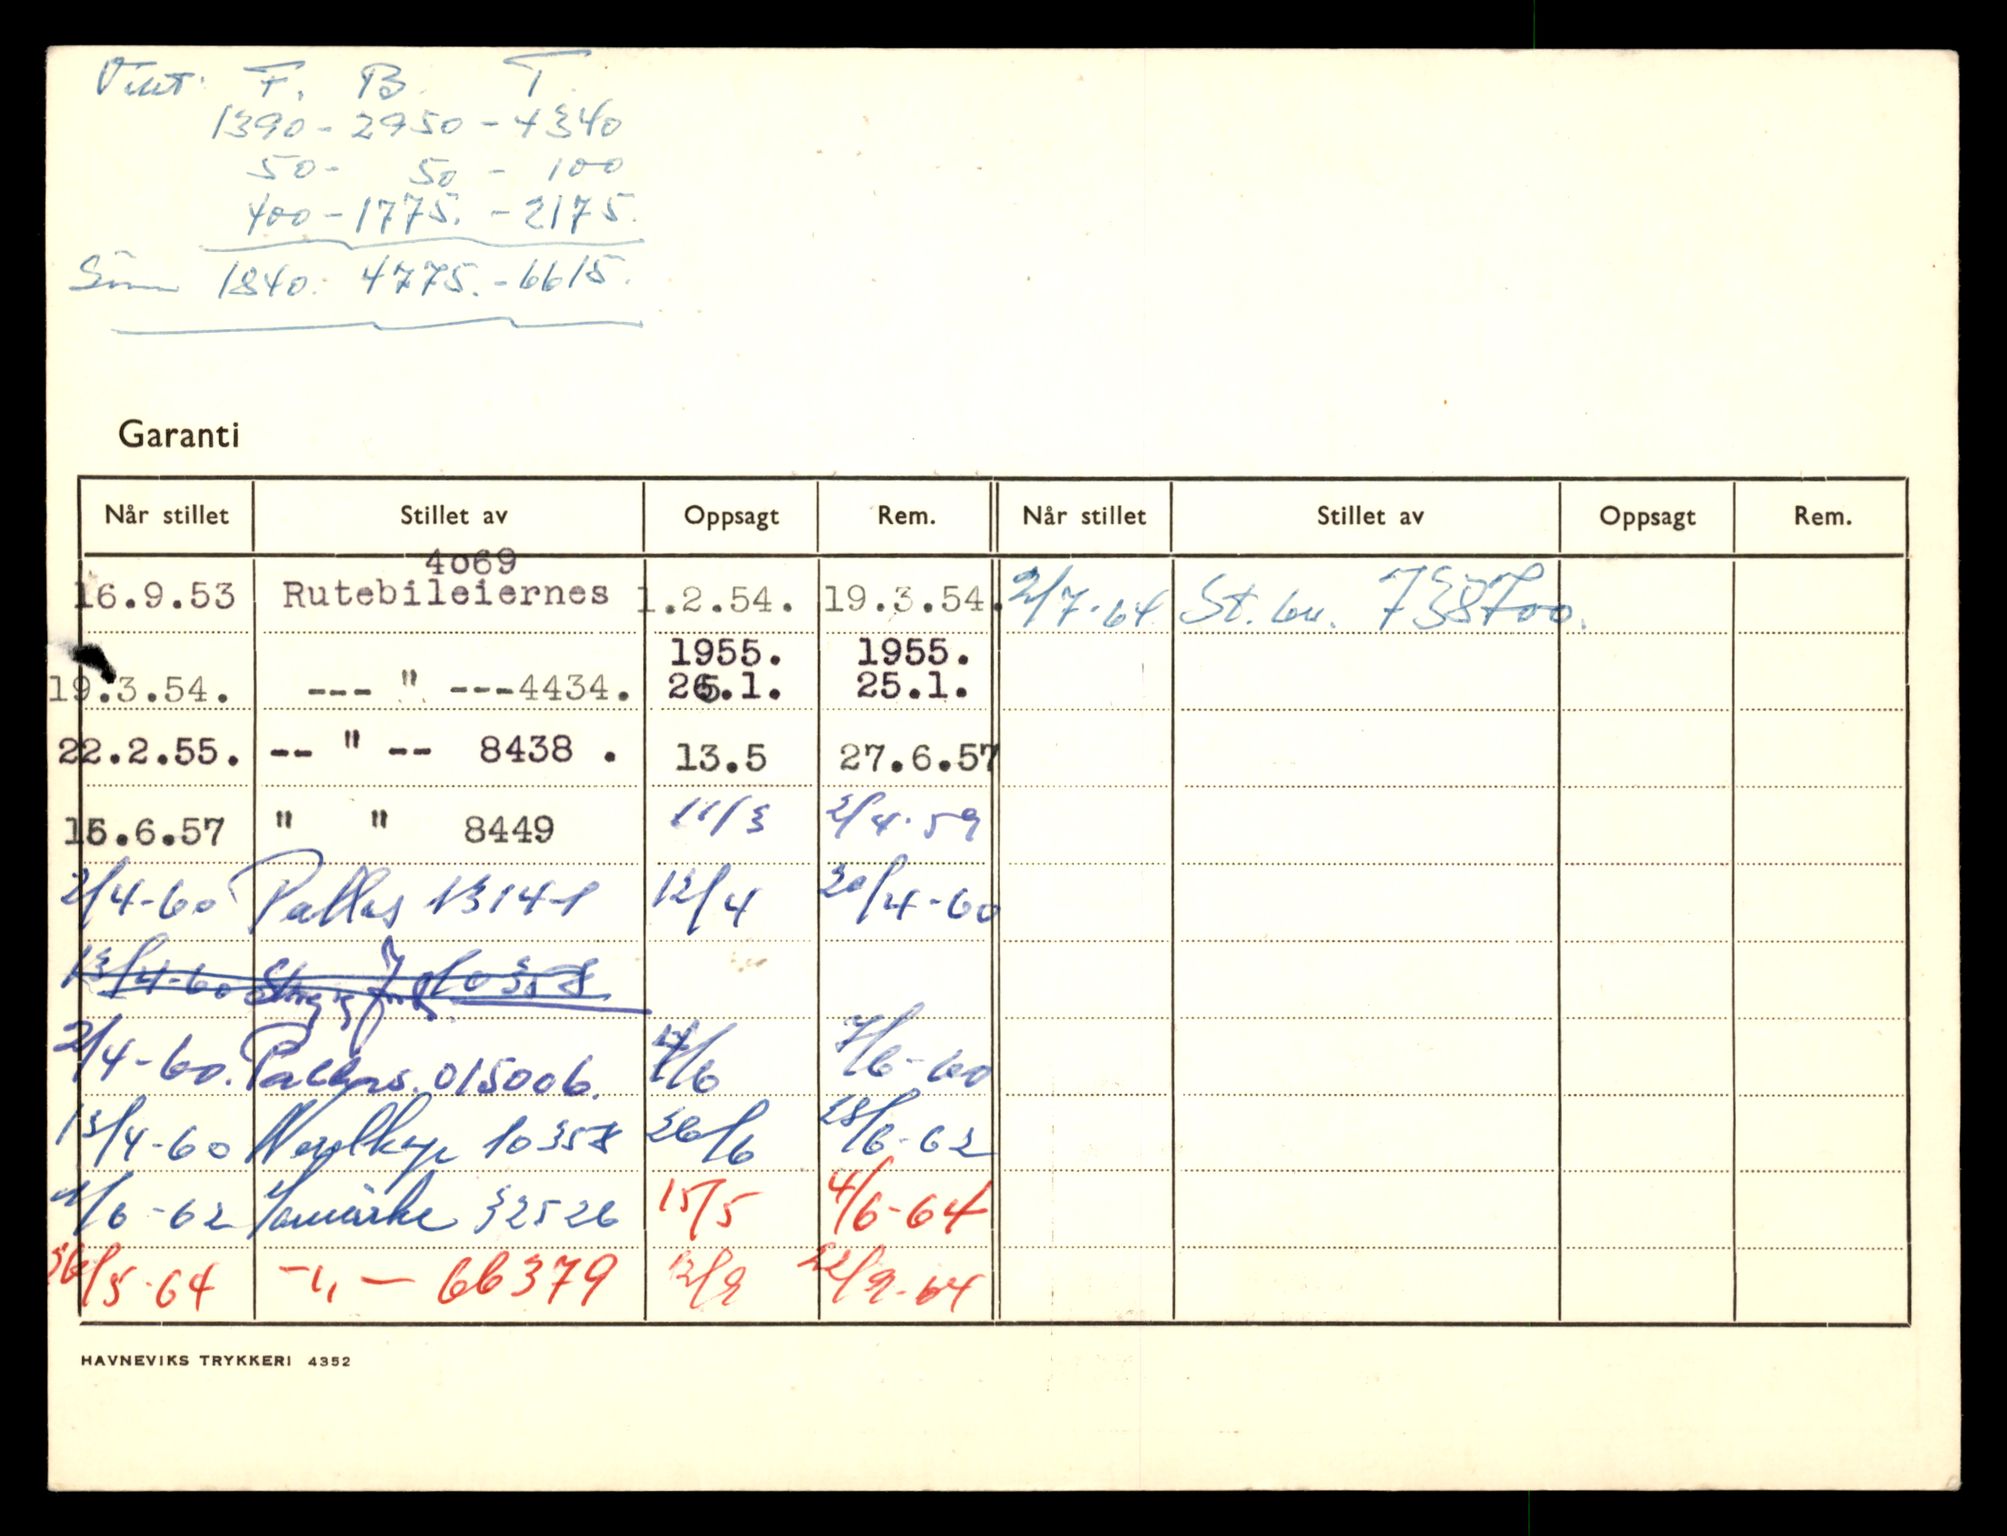 Vekt: F. B. T.
1390 - 2950 - 4340
50 - 50 - 100
400 - 1775. - 2175.
Sum 1840. 4775. - 6615.
Garanti
Når stillet Stillet av Oppsagt Rem. Når stillet Stillet av Oppsagt Rem.
4069
16.9.53 Rutebileiernes 1.2.54. 19.3.54. 2/7-64 St. br. 738700.
1955. 1955.
19.3.54. --- " ---4434. 26.1. 25.1.
22.2.55. -- " -- 8438 . 13.5 27.6.57
15.6.57 " " 8449 11/3 2/4-59
2/4-60 Pallas 13141 12/4 20/4-60
13/4-60 10358
2/4-60. 015006. /6 7/6-60
13/4-60 10358 26/6 28/6-62
/6-62 32526 15/5 4/6-64
/5-64 -"- 66379 12/9 22/9-64
HAVNEVIKS TRYKKERI 4352